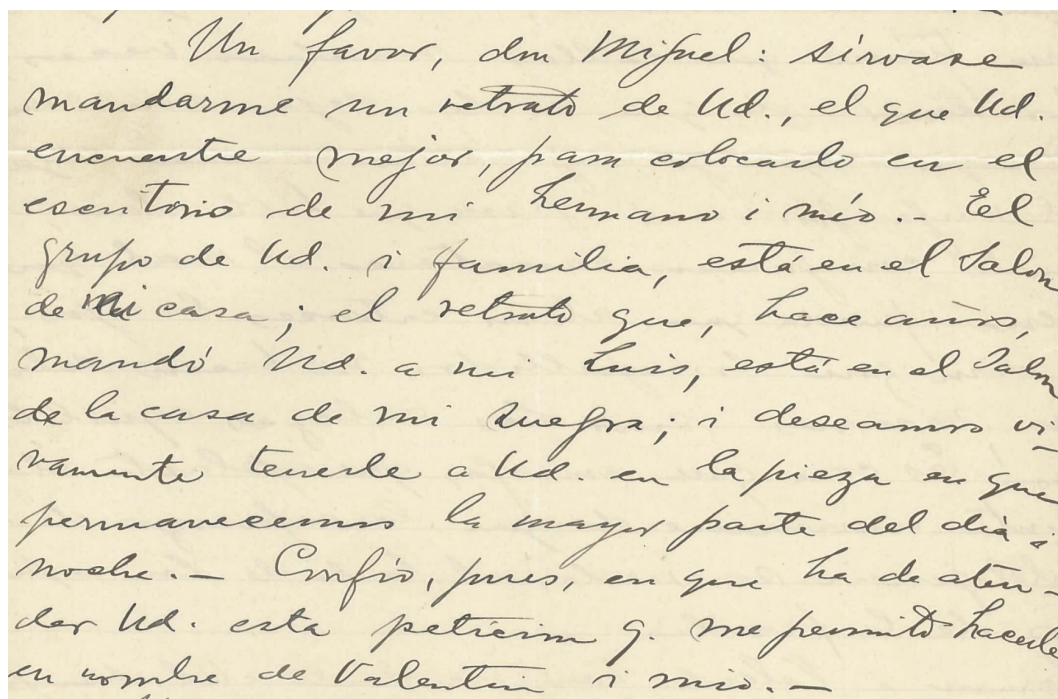 Un favor, don Miguel: sírvase
mandarme un retrato de Ud., el que Ud.
encuentre mejor, para colocarlo en el
escritorio de mi hermano i mío.- El
grupo de Ud. i familia, está en el Salon
de mi casa; el retrato que, hace años,
mandó Ud. a mi Luis, está en el Salon
de la casa de mi suegra; i deseamos vi-
vamente tenerle a Ud. en la pieza en que
permanecemos la mayor parte del dia i
noche.- Confío, pues, en que ha de aten-
der Ud. esta peticion q. me permito hacerle
en nombre de Valentin i mio.-